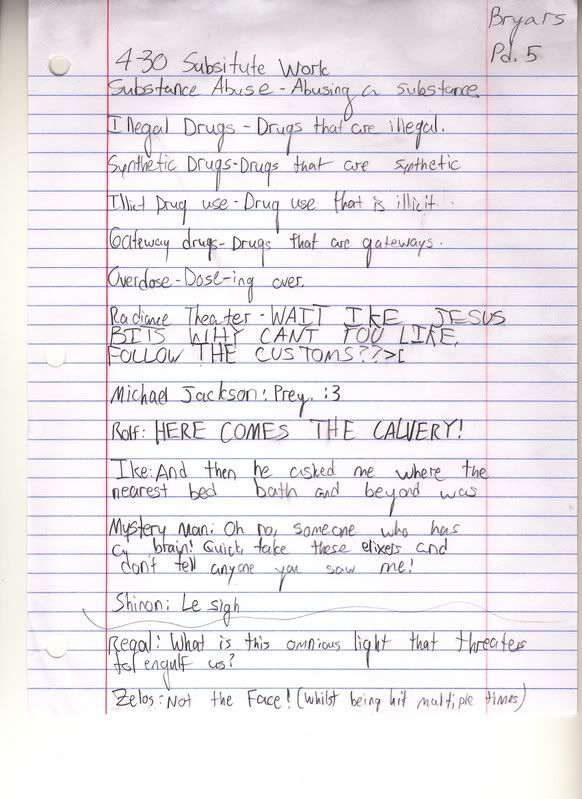 Bryars
Pd. 5
4-30 Subsitute Work
Substance Abuse - Abusing a substance.
Illegal Drugs - Drugs that are illegal.
Synthetic Drugs - Drugs that are synthetic
Illict Drug use - Drug use that is illicit.
Gateway drugs - Drugs that are gateways.
Overdose - Dose-ing over.
Radiance Theater - WAIT IKE JESUS
BITS WHY CANT YOU LIKE,
FOLLOW THE CUSTOMS??>[
Michael Jackson: Prey. :3
Rolf: HERE COMES THE CALVERY!
Ike: And then he asked me where the
nearest bed bath and beyond was
Mystery Man: Oh no, someone who has
a brain! Quick, take these elixers and
don't tell anyone you saw me!
Shinon: Le sigh
Regal: What is this omnious light that threatens
to engulf us?
Zelos: Not the Face! (Whilst being hit multiple times)